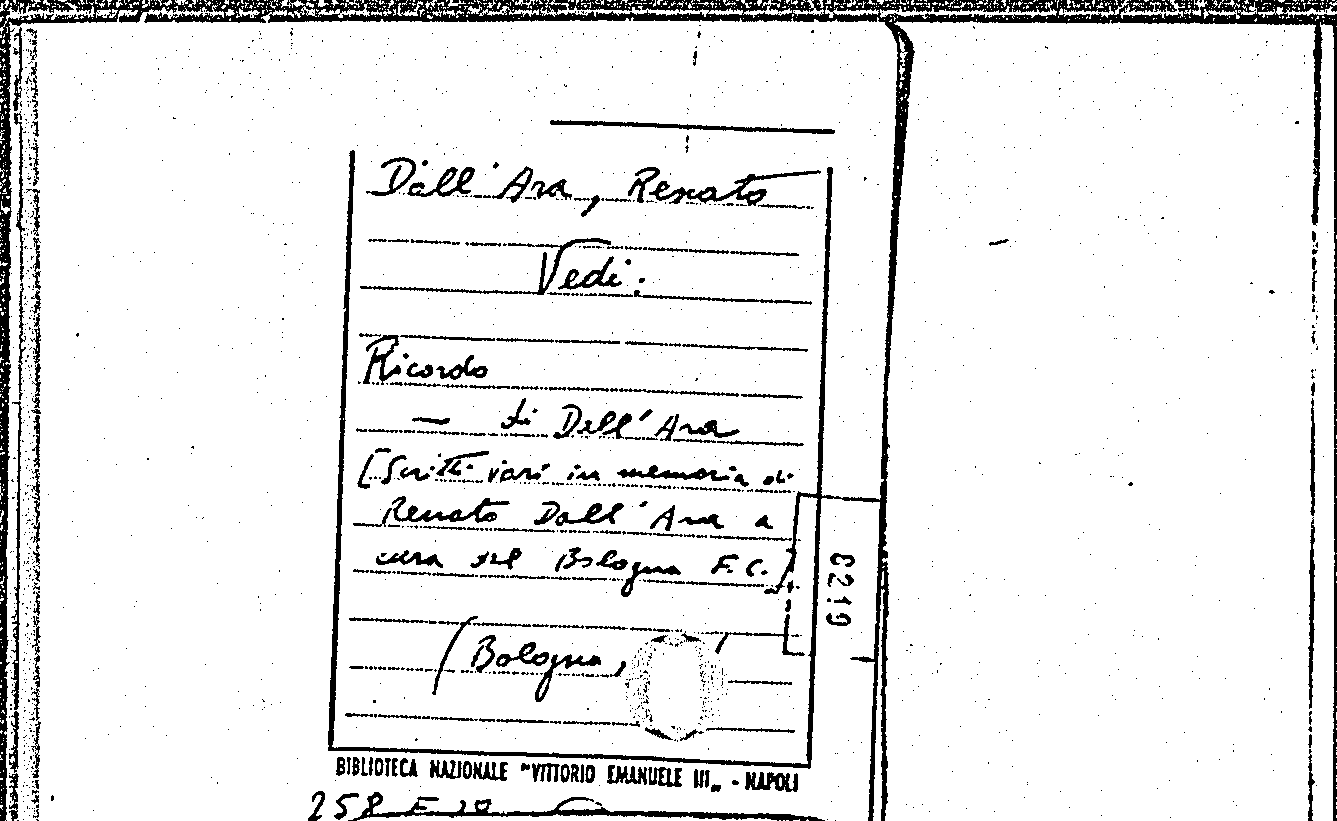 Dall'Ara, Renato
Vedi:
Ricordo
— di Dell'Ara
[Scritti vari in memoria di
Renato Dall'Ara a
cura del Bologna F.C.]
(Bologna,
8219
BIBLIOTECA NAZIONALE "VITTORIO EMANUELE III„ - NAPOLI
258 E